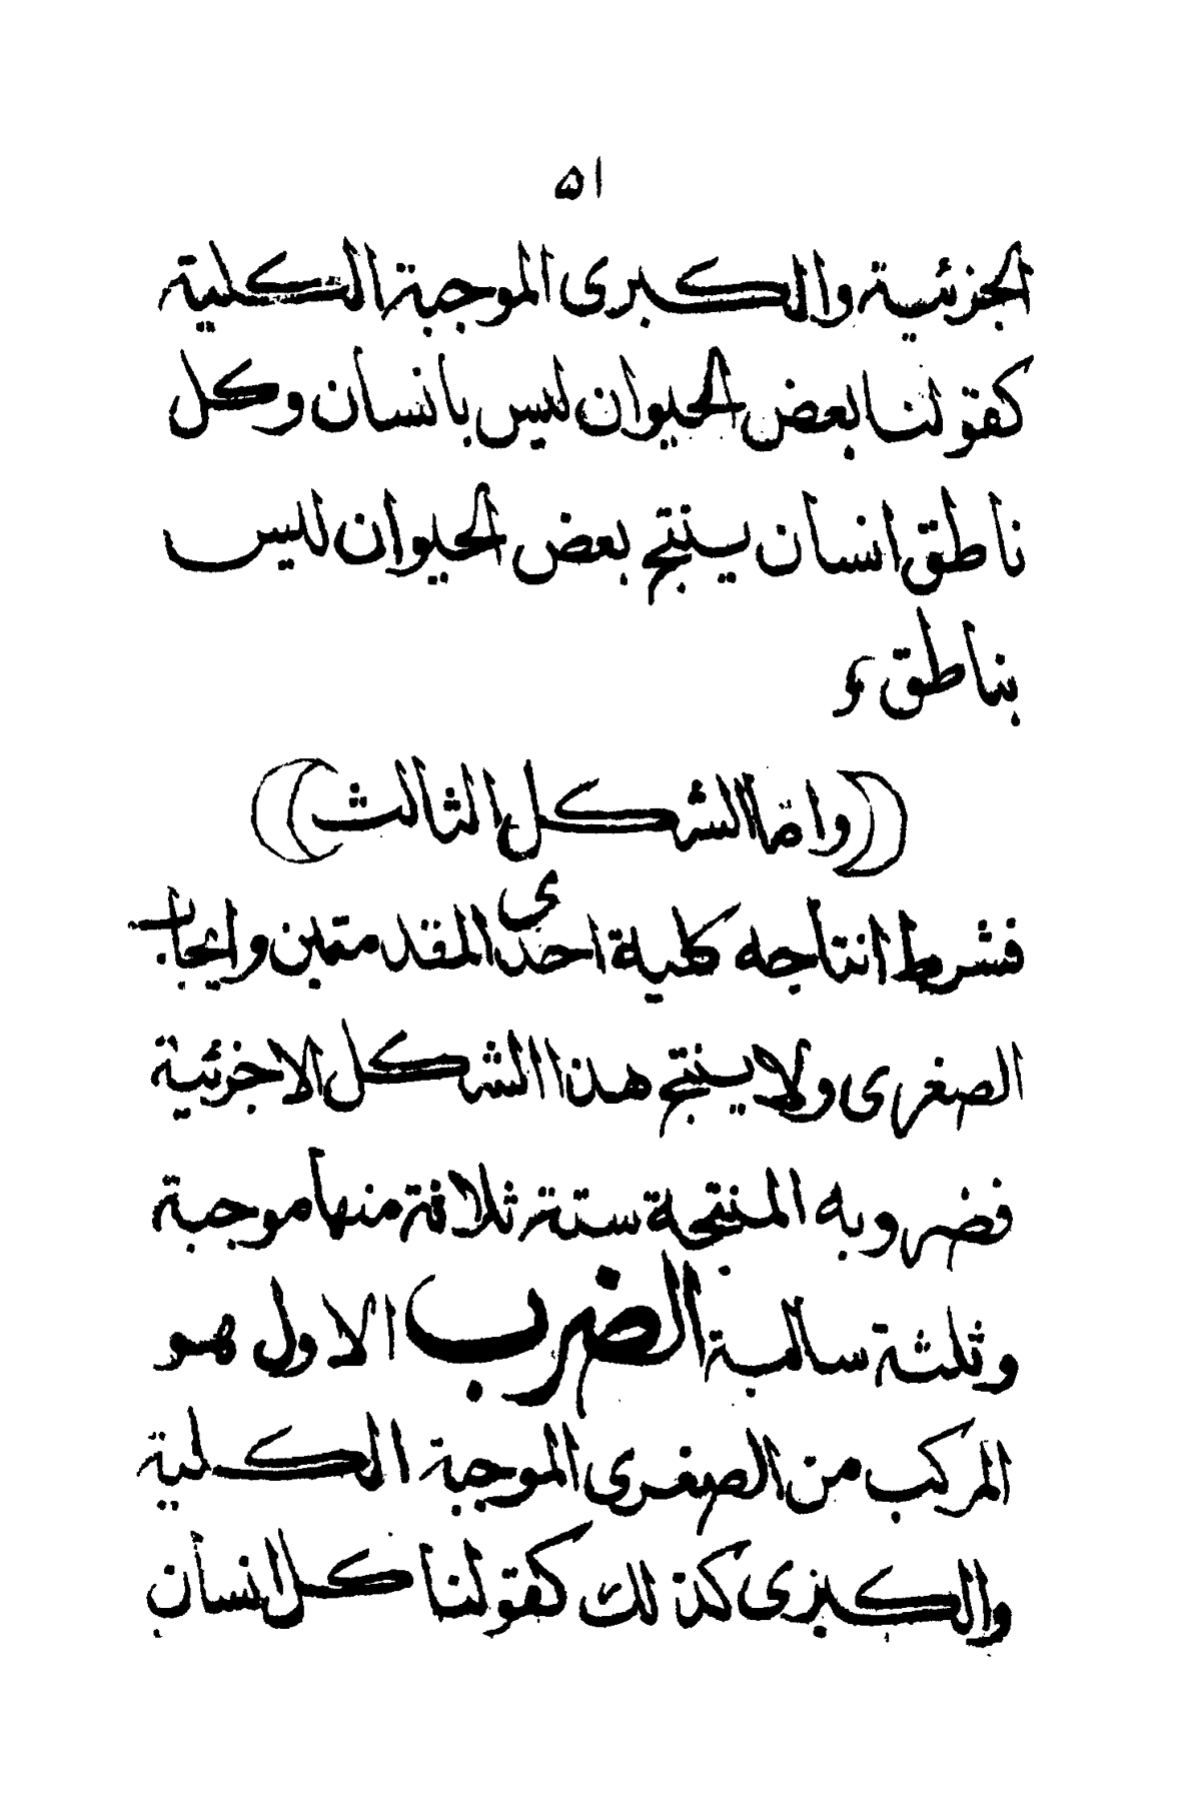 ٥١
الجزئية والكبرى الموجبة الكلية
كقولنا بعض الحيوان ليس بانسان وكل
ناطق انسان ينتج بعض الحيوان ليس
بناطق
(واما الشكل الثالث)
فشرط انتاجه كلية احدى المقدمتين وايجاب
الصغرى ولا ينتج هذا الشكل الا جزئية
فضروبه المنتجة ستة ثلاثة منها موجبة
وثلثة سالبة الضرب الاول هو
المركب من الصغرى الموجبة الكلية
والكبرى كذلك كقولنا كل انسان